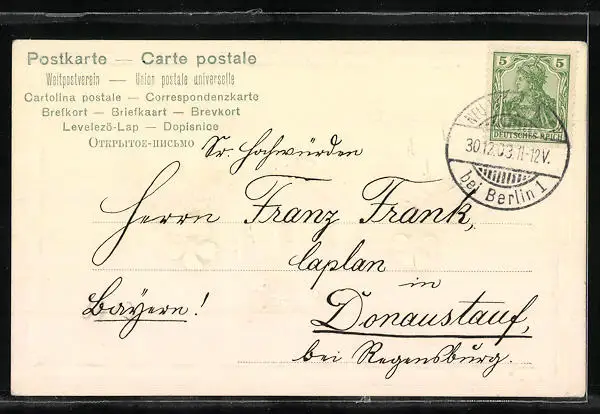 Postkarte — Carte postale
Weltpostverein — Union postale universelle
Cartolina postale — Correspondenzkarte
Brefkort — Briefkaart — Brevkort
Levelezö-Lap — Dopisnice
ОТКРЫТОЕ-ПИСЬМО
5 5
DEUTSCHES REICH
30.12.03.11-12V.
bei Berlin 1
Sr. Hochwürden
Herrn Franz Frank,
Caplan
in
Bayern!
Donaustauf,
bei Regensburg.